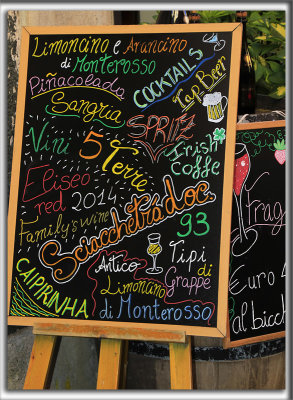 Limoncino e Arancino
di Monterosso
Piñacolada
COCKTAILS
Tap Beer
Sangria
SPRITZ
Irish
Coffe
Vini 5 Terre
Eliseo
red 2014
Family's wine
Sciacchetrà doc.
93
CAIPIRINHA
Antico
Limoncino
di Monterosso
Tipi
di
Grappe
Frag
Euro 4
al bicch